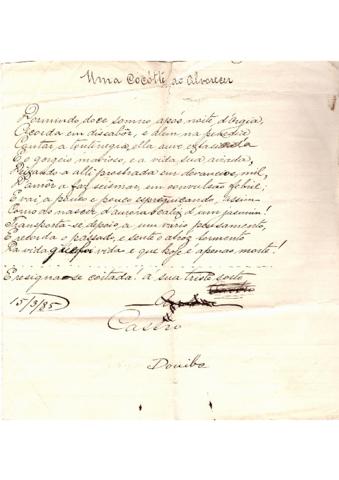 Uma Cocótte, ao Alvorecer
Dormindo, doce somno após noite d'orgia,
Acorda em dissabôr, e alem na penedia
Cantar, a toutinegra, ella ouve
E o gorgeio mavioso, e a vida, sua
Deixando-a alli prostrada em devaneios, mil,
D'amôr a faz scismar, em convulsão febril,
E vai, a pouco e pouco espreguiçando, assim
Como do nascer d'aurora d'um
Transporta-se depois a um vario pensamento,
E recorda o passado, e sente o atroz tormento
Da vida que foi vida e que hoje é apenas, morte!
E resigna-se coitada á sua triste sorte
15/3/85
Castro
Douibo